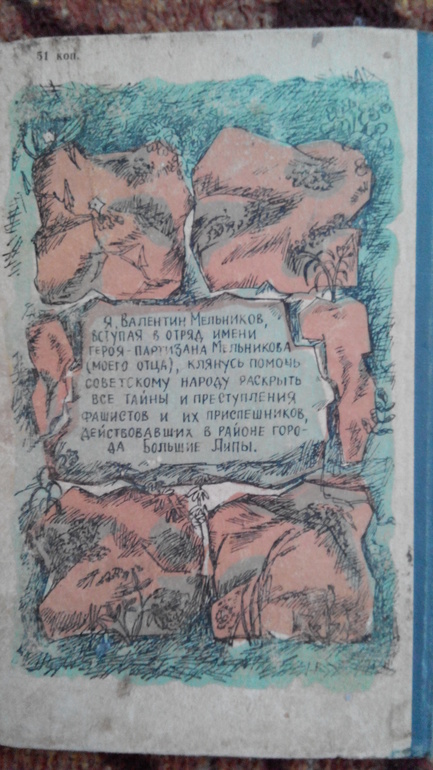 51 коп.
Я, Валентин Мельников,
вступая в отряд имени
героя-партизана Мельникова
(моего отца), клянусь помочь
советскому народу раскрыть
все тайны и преступления
фашистов и их приспешников,
действовавших в районе горо-
да Большие Ляпы.